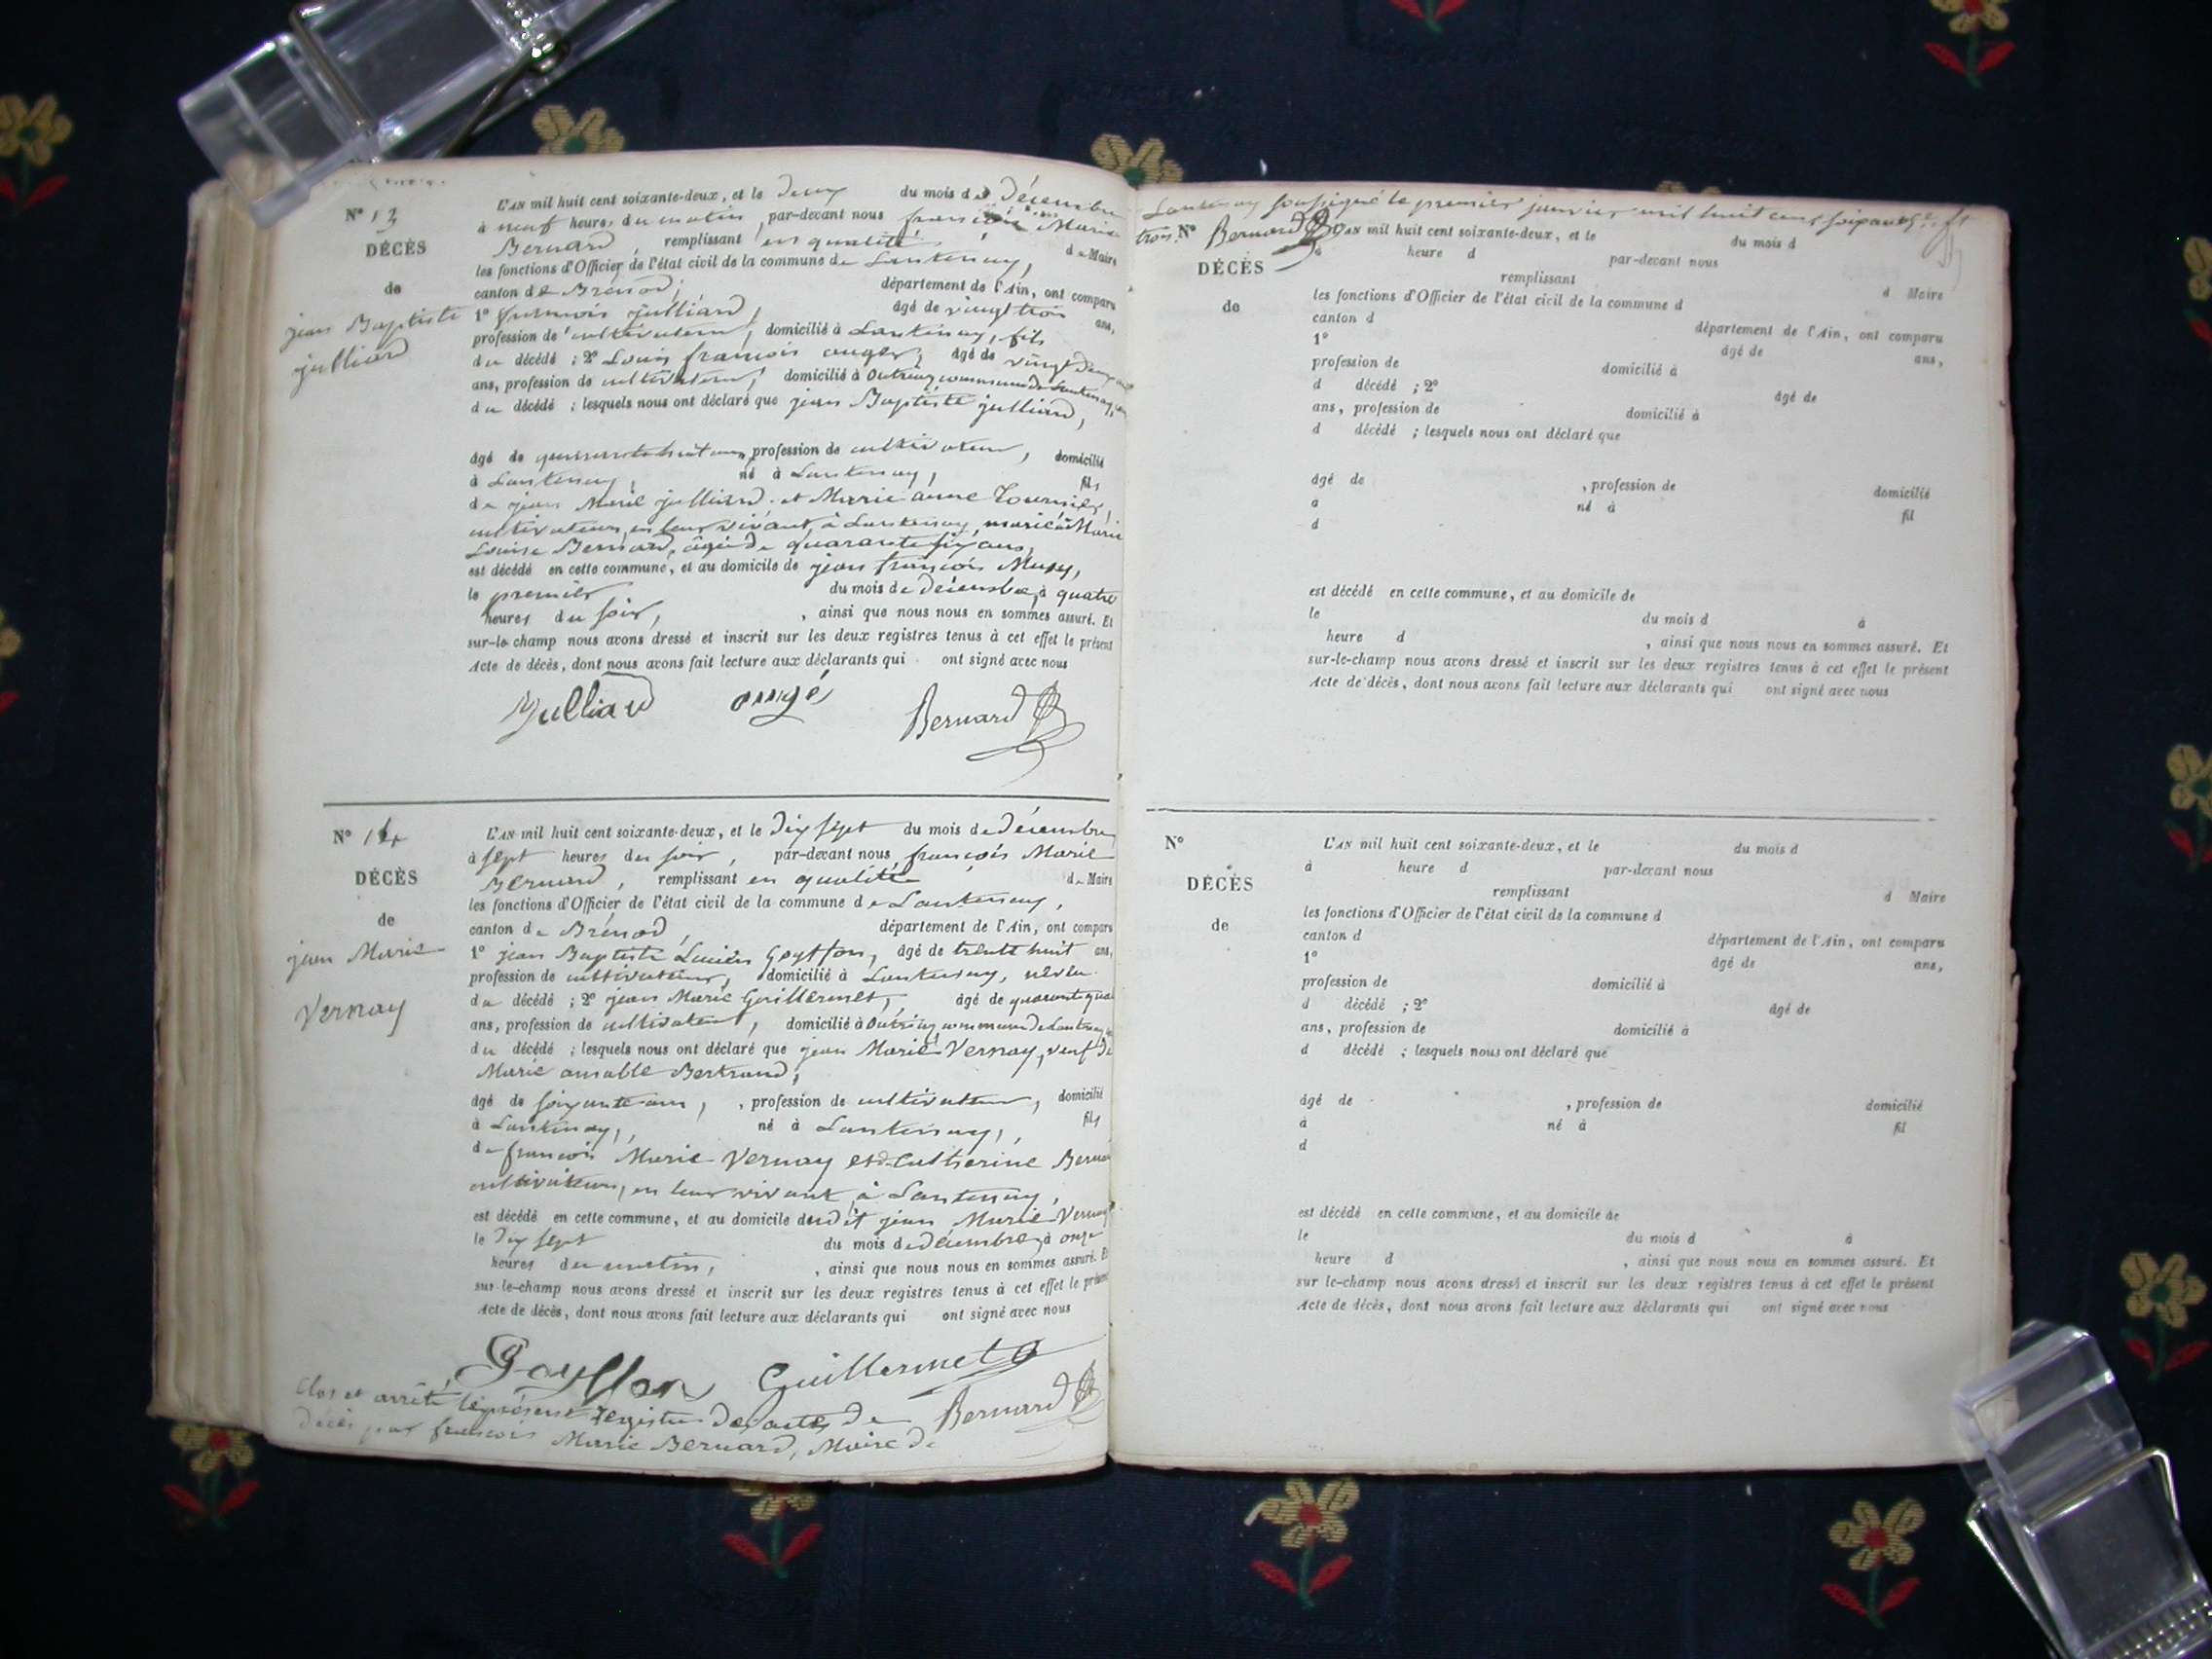 N° 13
DÉCÈS
de
jean Baptiste
julliard
L'AN mil huit cent soixante-deux, et le deux du mois de Décembre
à neuf heures du matin, par-devant nous françois Marie
Bernard, remplissant en qualité de Maire
les fonctions d'Officier de l'état civil de la commune de Lantenay,
canton de Brénod, département de l'Ain, ont comparu
1° françois julliard, âgé de vingt trois ans,
profession de cultivateur, domicilié à Lantenay, fils
du décédé ; 2° Louis françois auger, âgé de vingt deux
ans, profession de cultivateur, domicilié à Outriaz commune de Lantenay,
du décédé ; lesquels nous ont déclaré que jean Baptiste julliard,
âgé de quarante huit ans, profession de cultivateur, domicilié
à Lantenay, né à Lantenay, fils
de jean Marie julliard et Marie anne Tournier,
cultivateurs, en leur vivant, à Lantenay, marié à Marie
Louise Bernard, âgée de quarante six ans,
est décédé en cette commune, et au domicile de jean françois Musy,
le premier du mois de décembre, à quatre
heures du soir, , ainsi que nous nous en sommes assuré. Et
sur-le-champ nous avons dressé et inscrit sur les deux registres tenus à cet effet le présent
Acte de décès, dont nous avons fait lecture aux déclarants qui ont signé avec nous
Julliard augé Bernard
N° 14
DÉCÈS
de
jean Marie
Vernay
L'AN mil huit cent soixante-deux, et le dix sept du mois de décembre
à sept heures du soir, par-devant nous françois Marie
Bernard, remplissant en qualité de Maire
les fonctions d'Officier de l'état civil de la commune de Lantenay,
canton de Brénod, département de l'Ain, ont comparu
1° jean Baptiste Lucien Goyffon, âgé de trente huit ans,
profession de cultivateur, domicilié à Lantenay, neveu
du décédé ; 2° jean Marie Guillermet, âgé de quarante qua
ans, profession de cultivateur, domicilié à Outriaz commune de Lantenay
du décédé ; lesquels nous ont déclaré que jean Marie Vernay, veuf de
Marie amable Bertrand,
âgé de soixante ans, , profession de cultivateur, domicilié
à Lantenay, né à Lantenay, fils
de françois Marie Vernay et de Catherine Berna
cultivateurs, en leur vivant, à Lantenay,
est décédé en cette commune, et au domicile dudit jean Marie Vernay
le dix sept du mois de décembre, à onze
heures du matin, , ainsi que nous nous en sommes assuré. Et
sur-le-champ nous avons dressé et inscrit sur les deux registres tenus à cet effet le présent
Acte de décès, dont nous avons fait lecture aux déclarants qui ont signé avec nous
Goyffon Guillermet
Bernard
Clos et arrêté le présent registre des actes de
décès par françois Marie Bernard, Maire de
Lantenay soussigné le premier janvier mil huit cent soixante et
trois. Bernard
N°
DÉCÈS
de
L'AN mil huit cent soixante-deux, et le du mois d
à heure d par-devant nous
remplissant d Maire
les fonctions d'Officier de l'état civil de la commune d
canton d département de l'Ain, ont comparu
1° âgé de ans,
profession de domicilié à
d décédé ; 2° âgé de
ans, profession de domicilié à
d décédé ; lesquels nous ont déclaré que
âgé de , profession de domicilié
à né à fil
d
est décédé en cette commune, et au domicile de
le du mois d à
heure d , ainsi que nous nous en sommes assuré. Et
sur-le-champ nous avons dressé et inscrit sur les deux registres tenus à cet effet le présent
Acte de décès, dont nous avons fait lecture aux déclarants qui ont signé avec nous
N°
DÉCÈS
de
L'AN mil huit cent soixante-deux, et le du mois d
à heure d par-devant nous
remplissant d Maire
les fonctions d'Officier de l'état civil de la commune d
canton d département de l'Ain, ont comparu
1° âgé de ans,
profession de domicilié à
d décédé ; 2° âgé de
ans, profession de domicilié à
d décédé ; lesquels nous ont déclaré que
âgé de , profession de domicilié
à né à fil
d
est décédé en cette commune, et au domicile de
le du mois d à
heure d , ainsi que nous nous en sommes assuré. Et
sur le-champ nous avons dressé et inscrit sur les deux registres tenus à cet effet le présent
Acte de décès, dont nous avons fait lecture aux déclarants qui ont signé avec nous